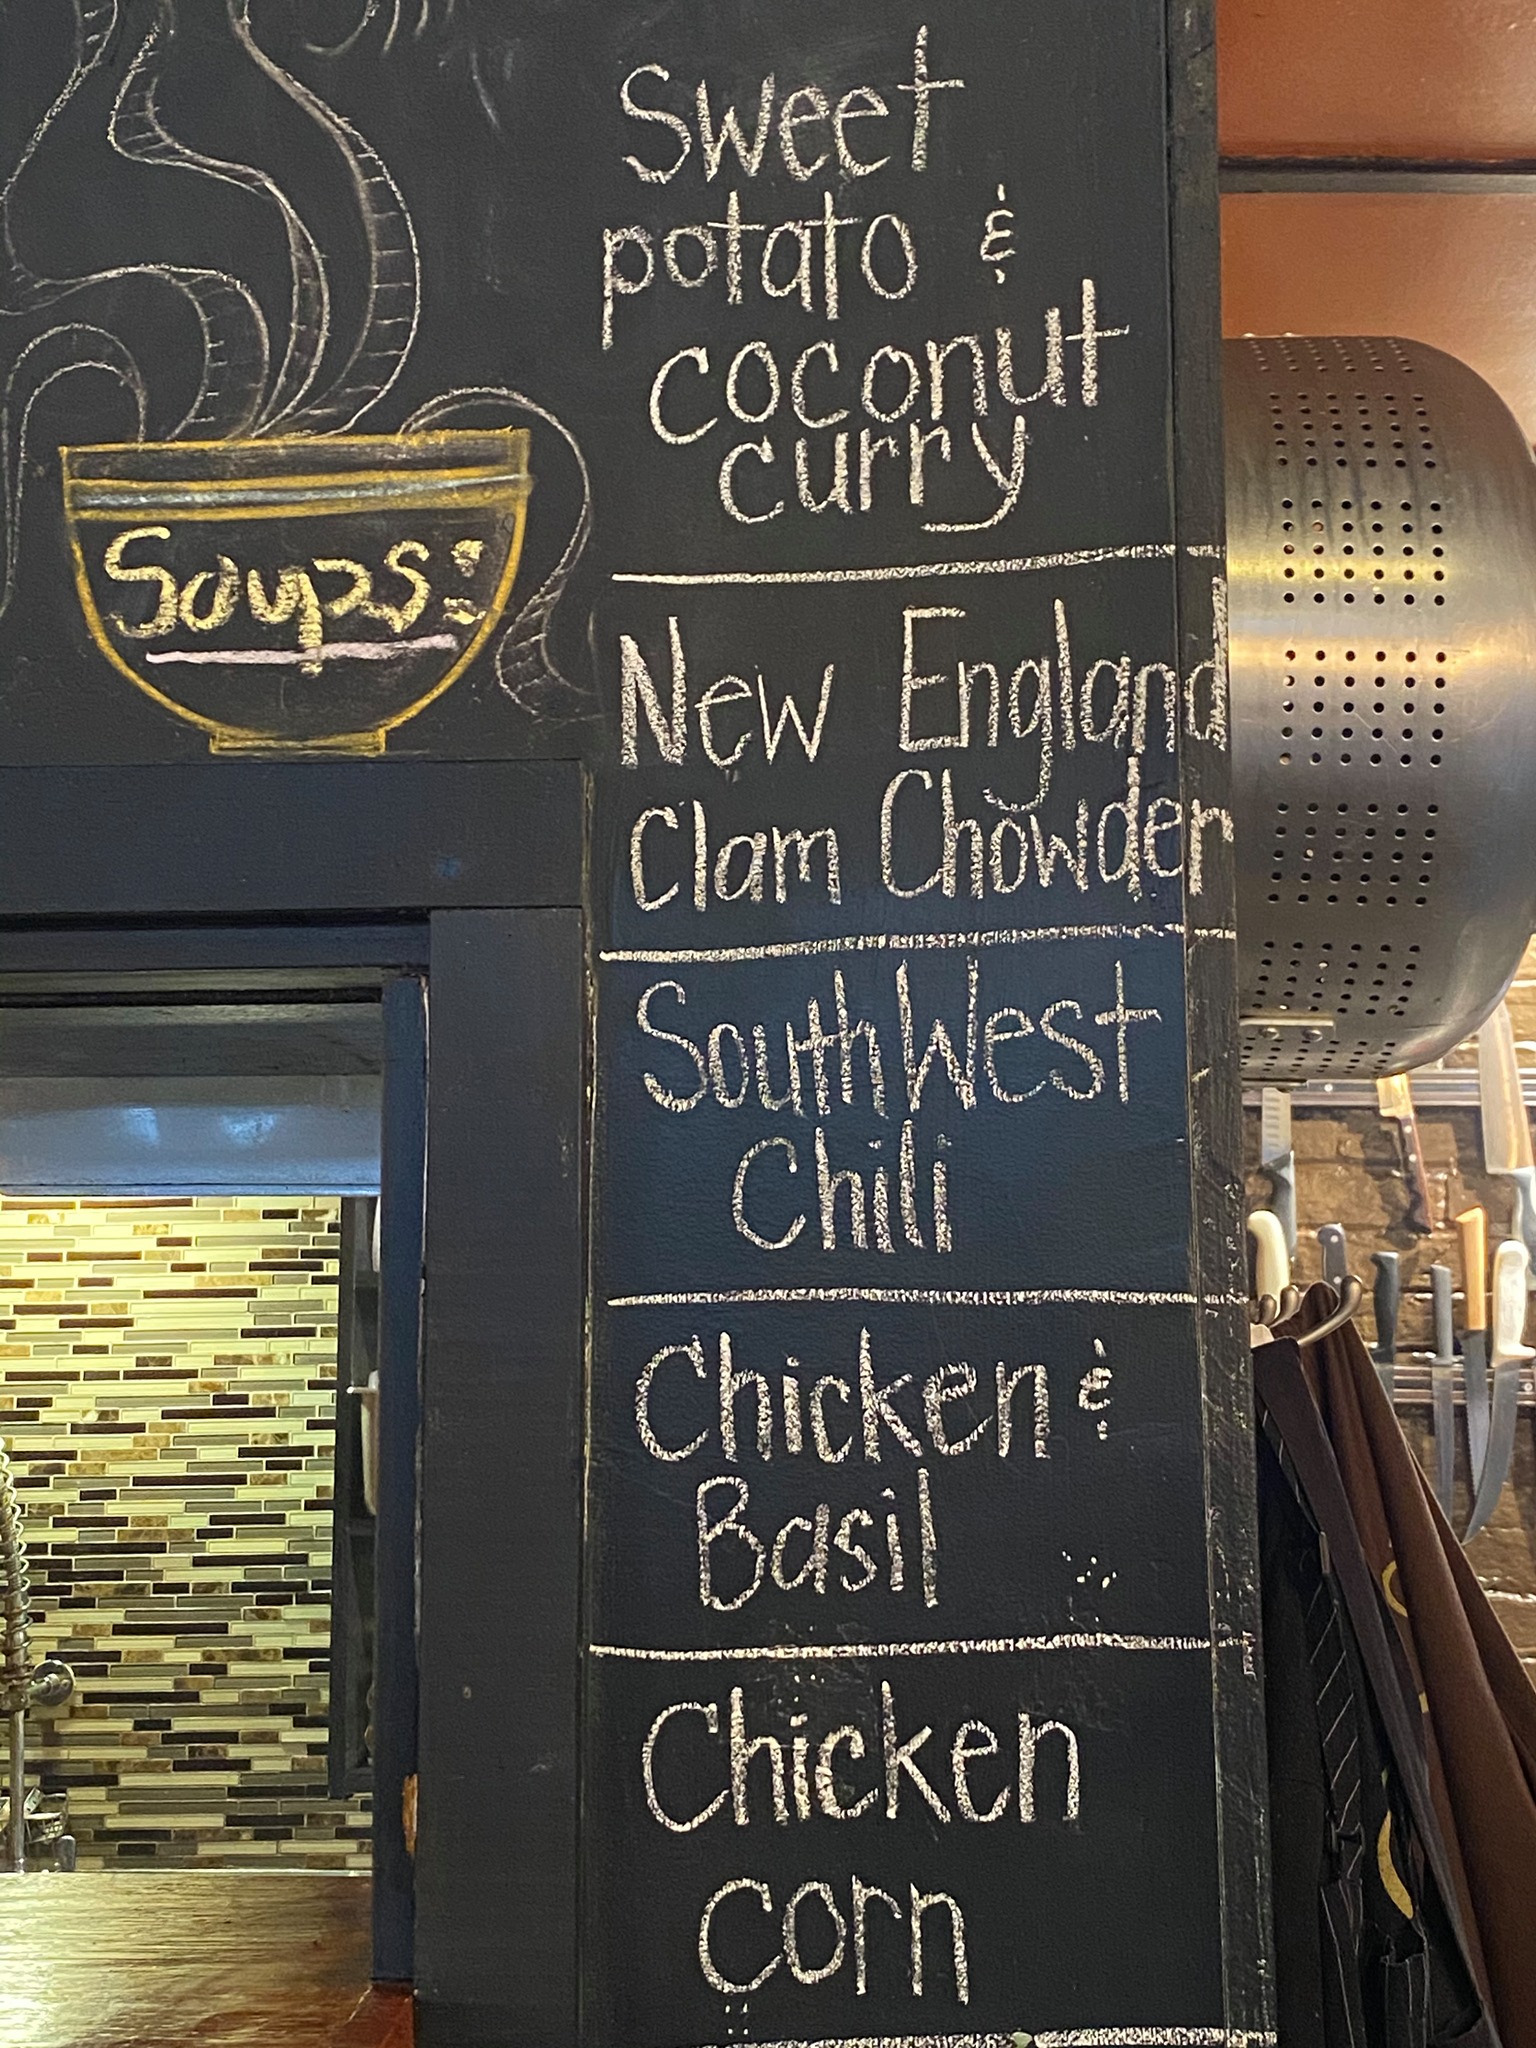 Soups:
Sweet
potato &
coconut
curry
New England
Clam Chowder
SouthWest
Chili
Chicken &
Basil
Chicken
corn